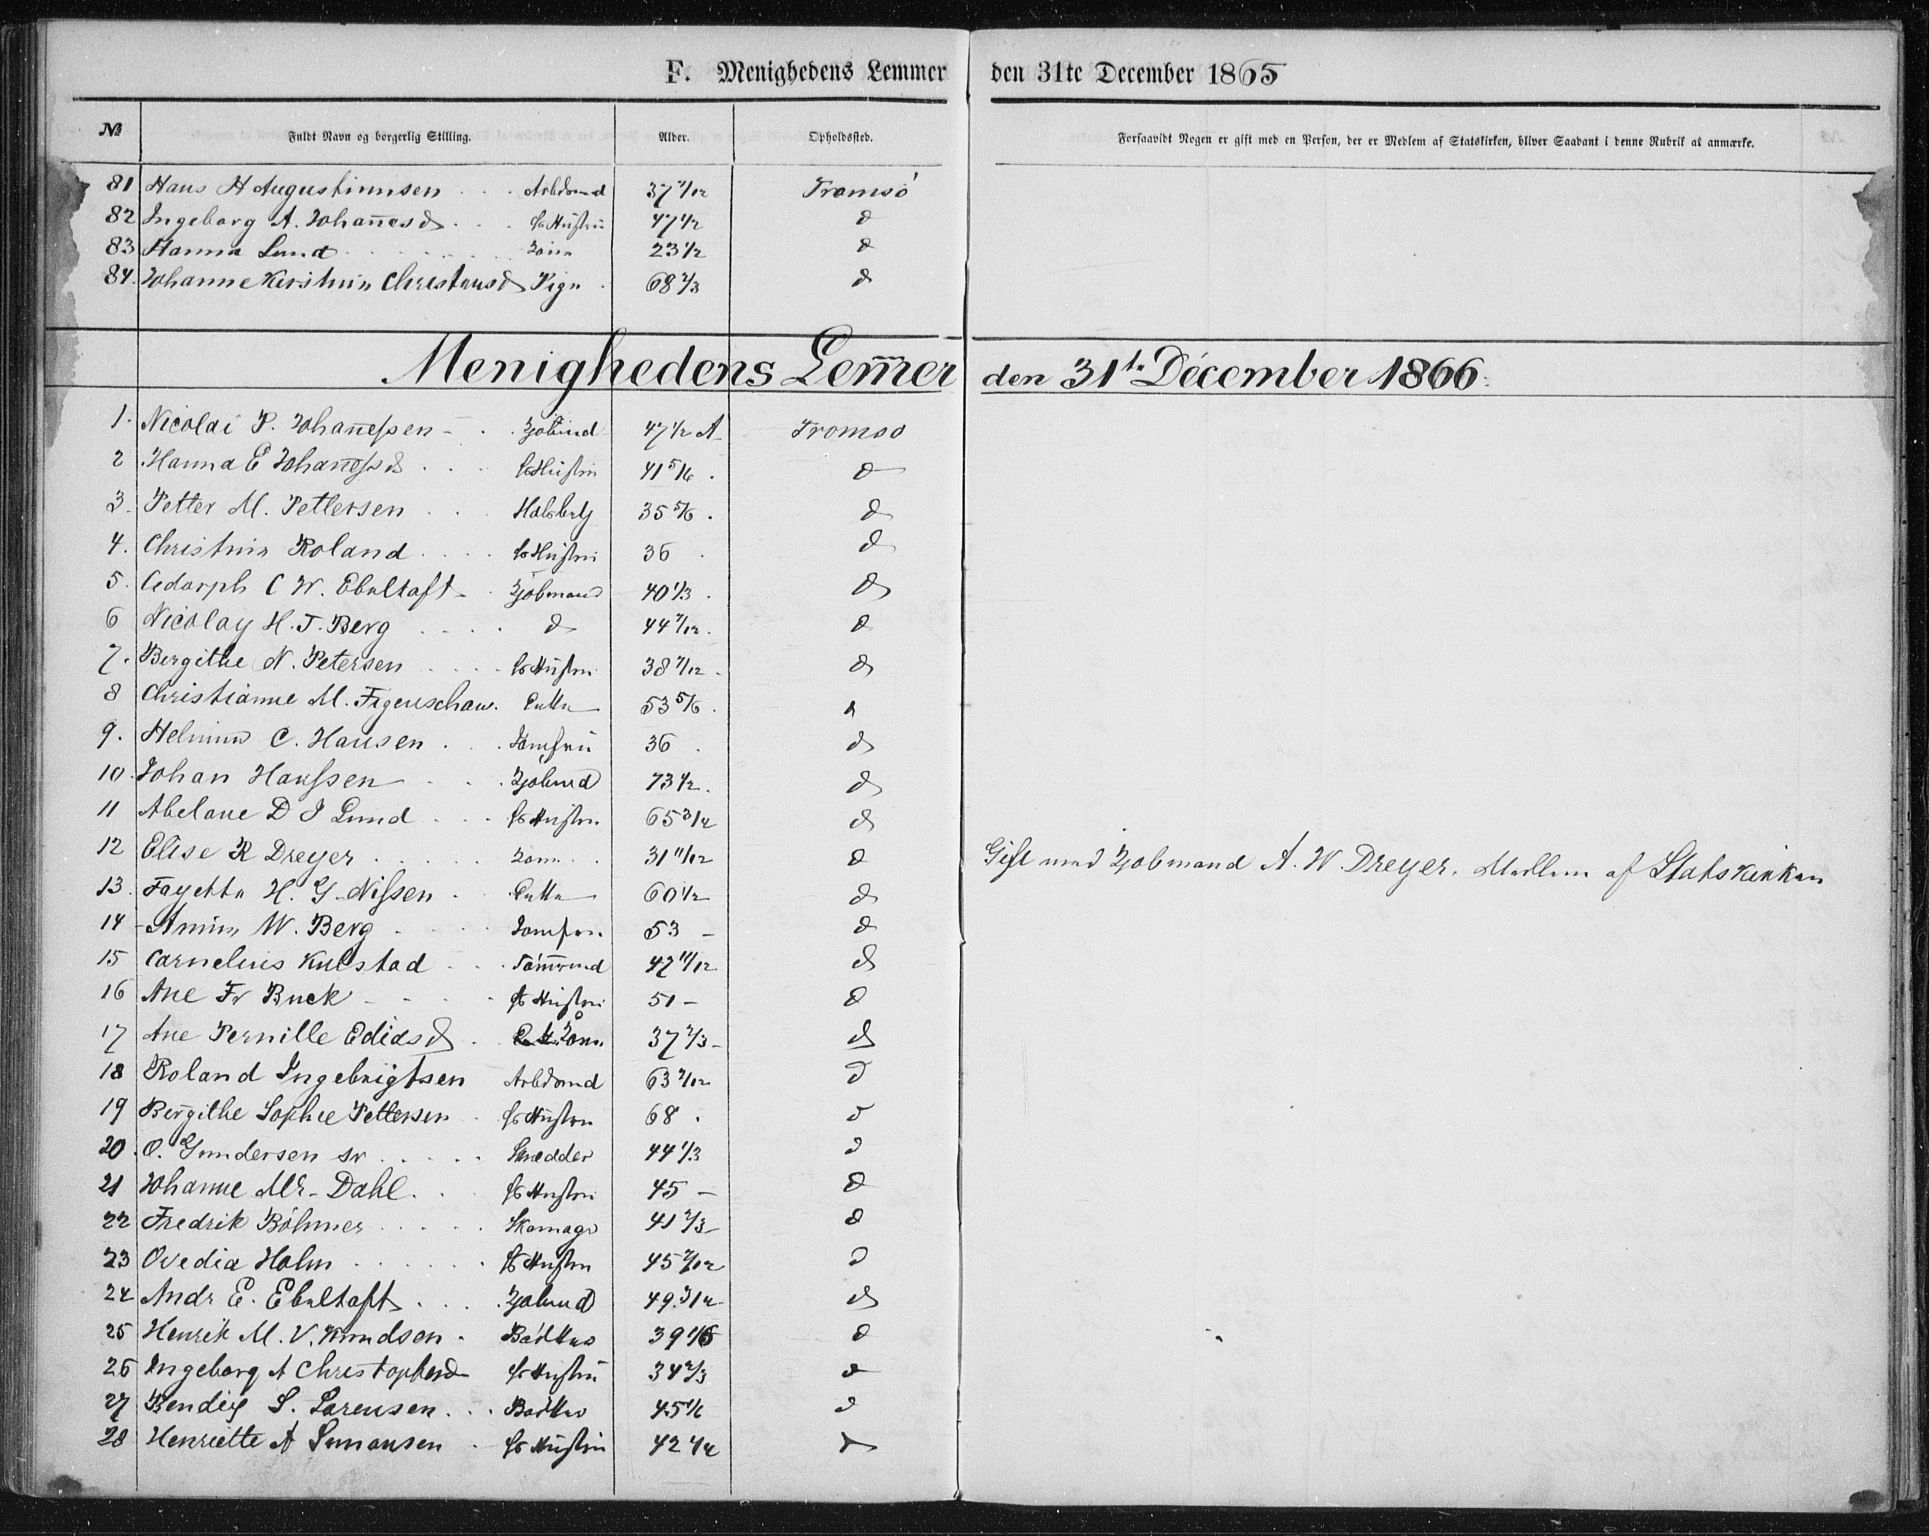 F. Menighedens Lemmer den 31te December 1865
№ Fuldt Navn og borgerlig Stilling. Alder. Opholdssted. Forsaavidt Nogen er gift med en Person, der er Medlem af Statskirken, bliver Saadant i denne Rubrik at anmærke.
81 Hans H Augustinnsen Arbdmd 37 7/12 Tromsö
82 Ingeborg A. Joha̅nesd Hustru 47 1/2 d
83 Hanna Lund Kone 23 1/2 d
84. Johanne Kirstin Christensd Pige 68 2/3 d
Menighedens Lem̅er den 31te December 1866.
1. Nicolai P. Joha̅nessen Kjöbmd 47 1/2 A Tromsö
2 Hanna E Joha̅nessd Hustru 41 5/6 d
3. Petter M. Pettersen 35 5/6 d
4. Christine Roland Hustru 36 d
5. C W. Ebeltoft Kjöbmand 40 1/3 d
6 Nicolay H. J. Berg d 44 7/12 d
7. Bergithe N. Petersen Hustru 38 7/12 d
8 Christianne M. Figenschau Enke 53 5/6 d
9. Helmine C. Hansen Jomfru 36 d
10. Johan Hanssen Kjöbmd 73 1/2 d
11 Abelone D J Lund Hustru 65 3/4 d
12 Elise R Dreyer Kone 31 11/12 d Gift med Kjöbmand A. W. Dreyer, Medlem af Statskirken
13. Fayetta H. G Nissen Enke 60 1/2 d
14 Amine W. Berg Jomfru 53 d
15 Cornelius Kulstad Töm̅rmd 42 11/12 d
16 Ane Fr Buck Hustru 51 d
17 Ane Pernille Edidsd Kone 37 2/3 d
18 Roland Ingebrigtsen Arbdmd 63 7/12 d
19 Bergithe Sophie Pettersen Hustru 68 d
20. O. Gundersen sr Snedder 44 1/3 d
21 Johanne Mr. Dahl Hustru 45 d
22 Fredrik Böhmer Skomagr 41 2/3 d
23 Ovedia Holm Hustru 45 7/12 d
24 Andr E. Ebeltoft Kjöbmd 49 3/4 d
25 Henrik M. V. Knudsen Bödker 39 1/6 d
26 Ingeborg A Christophersd Hustru 34 2/3 d
27 Bendix S. Sörensen Bödker 45 1/6 d
28 Henriette A Simonsen Hustru 42 1/4 d